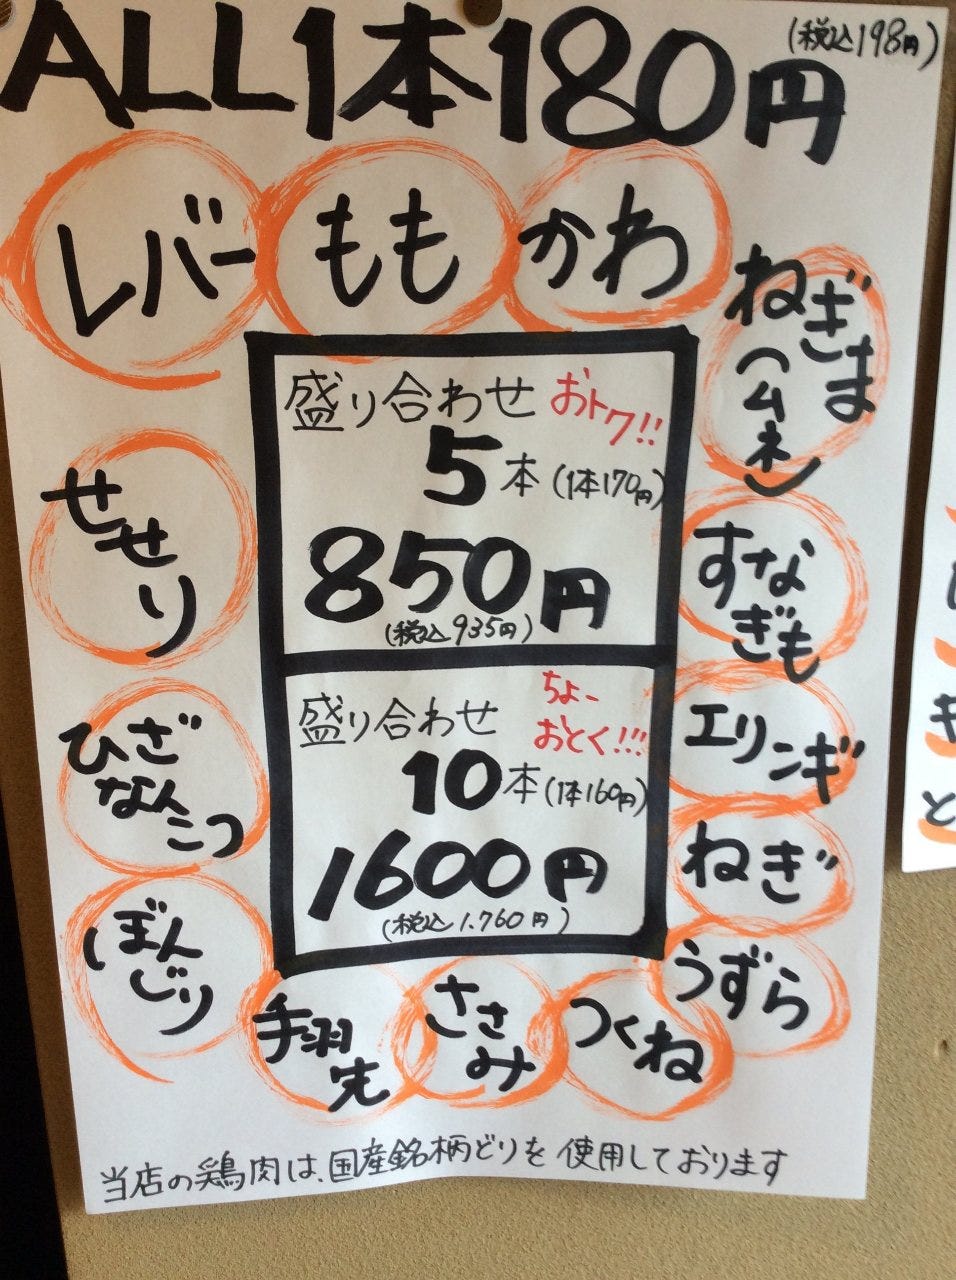 ALL1本180円
(税込198円)
レバー
もも
かわ
ねぎま
(ムネ)
せせり
すな
ぎも
盛り合わせ おトク!!
5本(1本170円)
850円
(税込935円)
盛り合わせ
ちょー
おとく!!!
10本(1本160円)
1600円
(税込1.760円)
エリンギ
ねぎ
ひざ
なんこつ
ぼん
じり
手羽
先
ささ
み
つくね
うずら
当店の鶏肉は、国産銘柄どりを使用しております
き
と